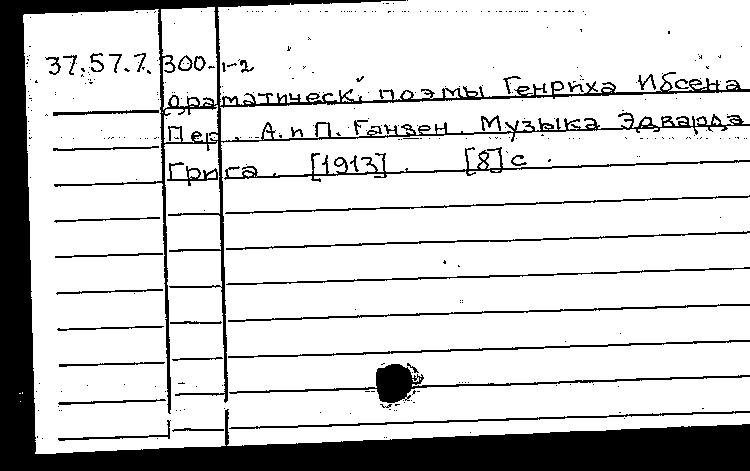 37.57.7.300-1-2
драматическ. поэмы Генриха Ибсена
Пер. А. и П. Ганзен. Музыка Эдварда
Грига. [1913]. [8] с.